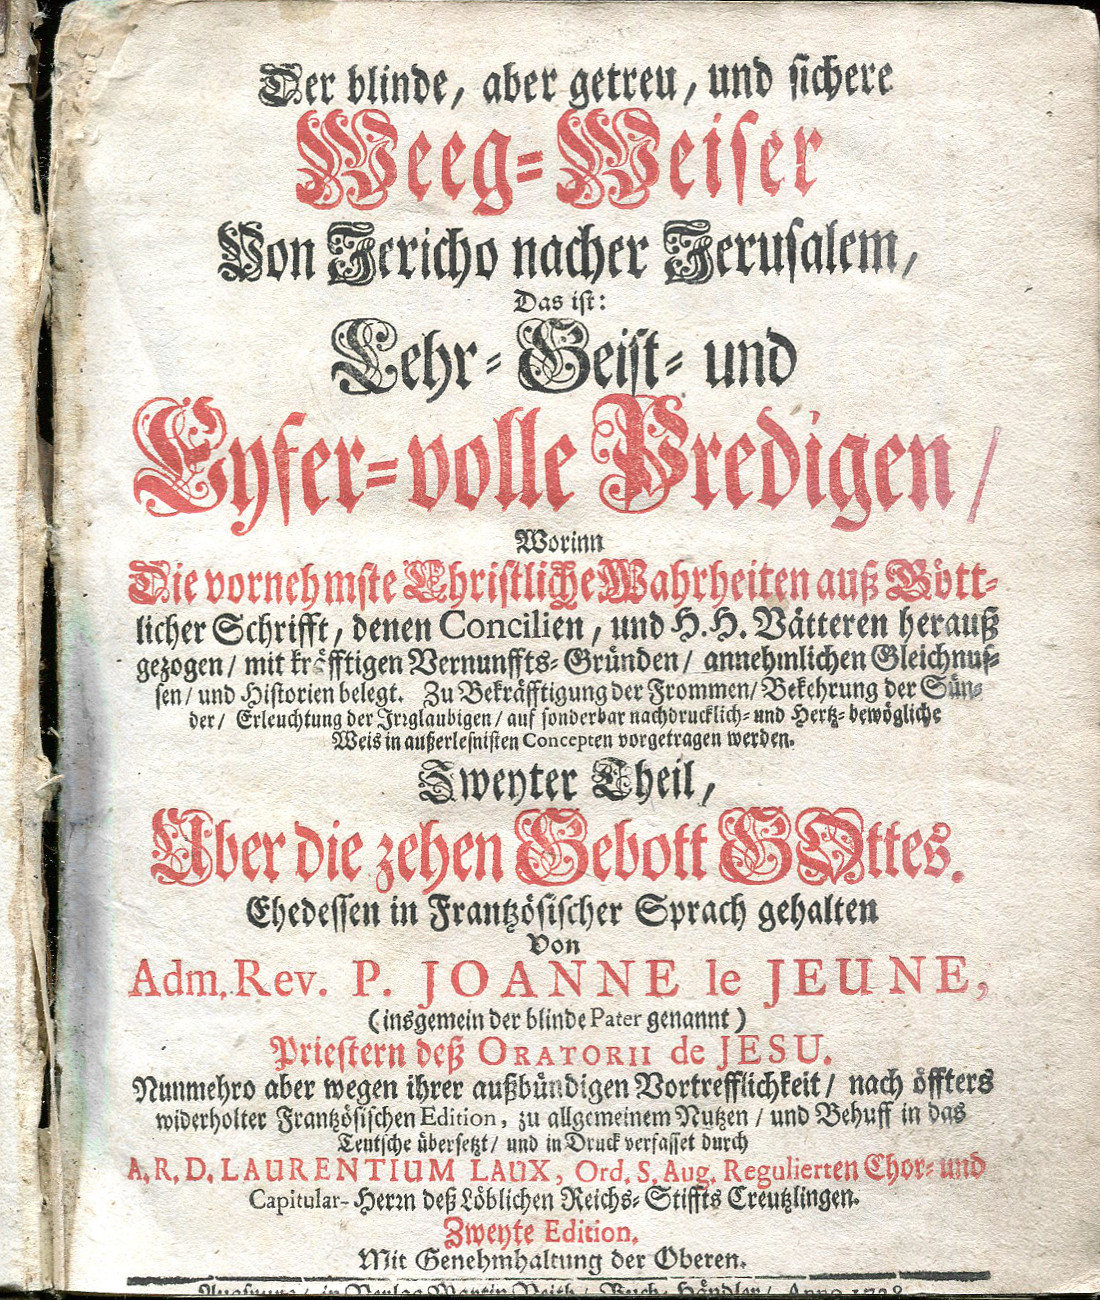 Der blinde, aber getreu, und sichere
Weeg-Weiser
Von Jericho nacher Jerusalem,
Das ist:
Lehr-Geist- und
Eyfer-volle Predigen/
Worinn
Die vornehmste Christliche Wahrheiten auß Gött-
licher Schrifft, denen Concilien, und H.H. Vätteren herauß
gezogen/ mit kräfftigen Vernunffts-Gründen/ annehmlichen Gleichnus-
sen/ und Historien belegt. Zu Bekräfftigung der Frommen/ Bekehrung der Sün-
der/ Erleuchtung der Irrglaubigen/ auf sonderbar nachdrucklich- und Hertz-bewögliche
Weis in außerlesnisten Concepten vorgetragen werden.
Zweyter Theil,
Uber die zehen Gebott GOttes.
Ehedessen in Frantzösischer Sprach gehalten
Von
Adm. Rev. P. JOANNE le JEUNE,
(insgemein der blinde Pater genannt)
Priestern deß ORATORII de JESU.
Nunmehro aber wegen ihrer außbündigen Vortrefflichkeit/ nach öffters
widerholter Frantzösischen Edition, zu allgemeinem Nutzen/ und Behuff in das
Teutsche übersetzt/ und in Druck verfasset durch
A. R. D. LAURENTIUM LAUX, Ord. S. Aug. Regulierten Chor- und
Capitular-Herrn deß Löblichen Reichs-Stiffts Creutzlingen.
Zweyte Edition.
Mit Genehmhaltung der Oberen.
Augspurg/ in Verlag Martin Veith/ Buch-Händler/ Anno 1738